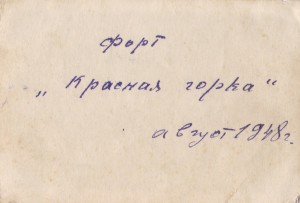 форт
„Красная горка"
август 1948г.